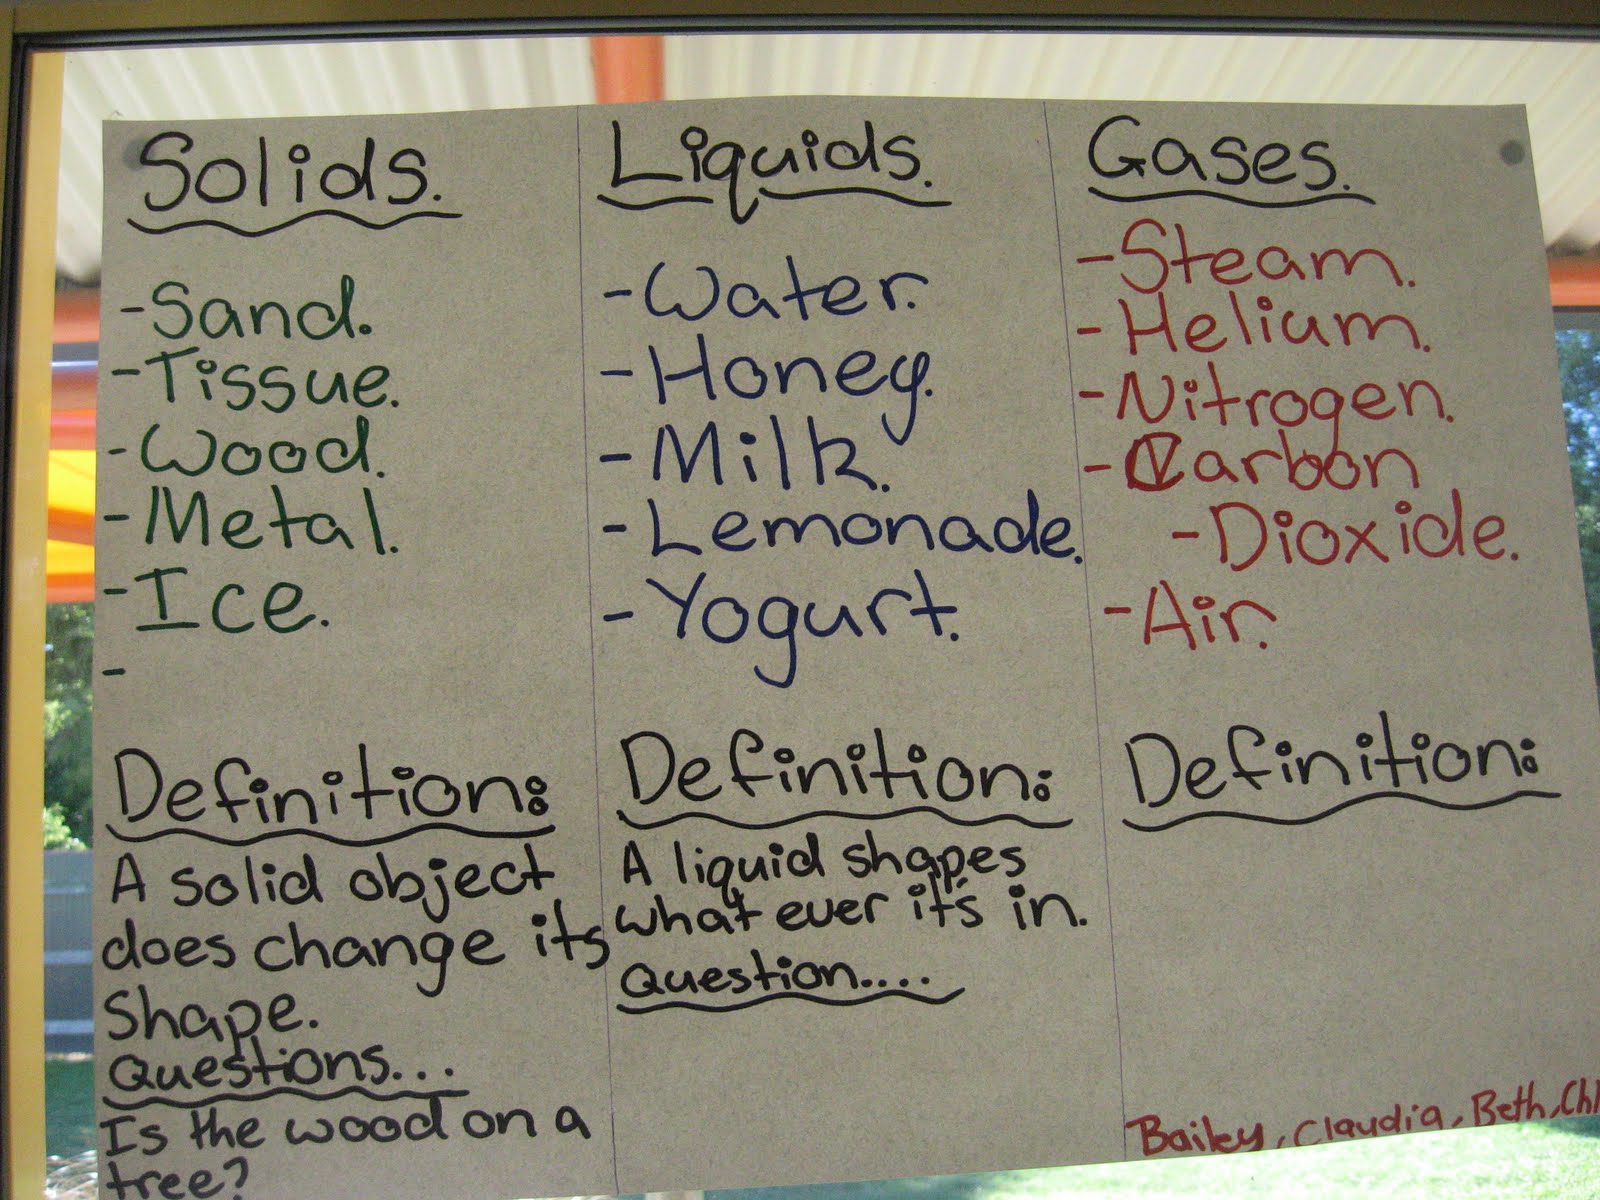 Solids.
-Sand.
-Tissue.
-Wood.
-Metal.
-Ice.
-
Definition:
A solid object
does change its
shape.
Questions...
Is the wood on a
tree?
Liquids.
-Water.
-Honey.
-Milk.
-Lemonade.
-Yogurt.
Definition:
A liquid shapes
what ever it's in.
Question....
Gases.
-Steam.
-Helium.
-Nitrogen.
-Carbon
-Dioxide.
-Air.
Definition:
Bailey, Claudia, Beth,